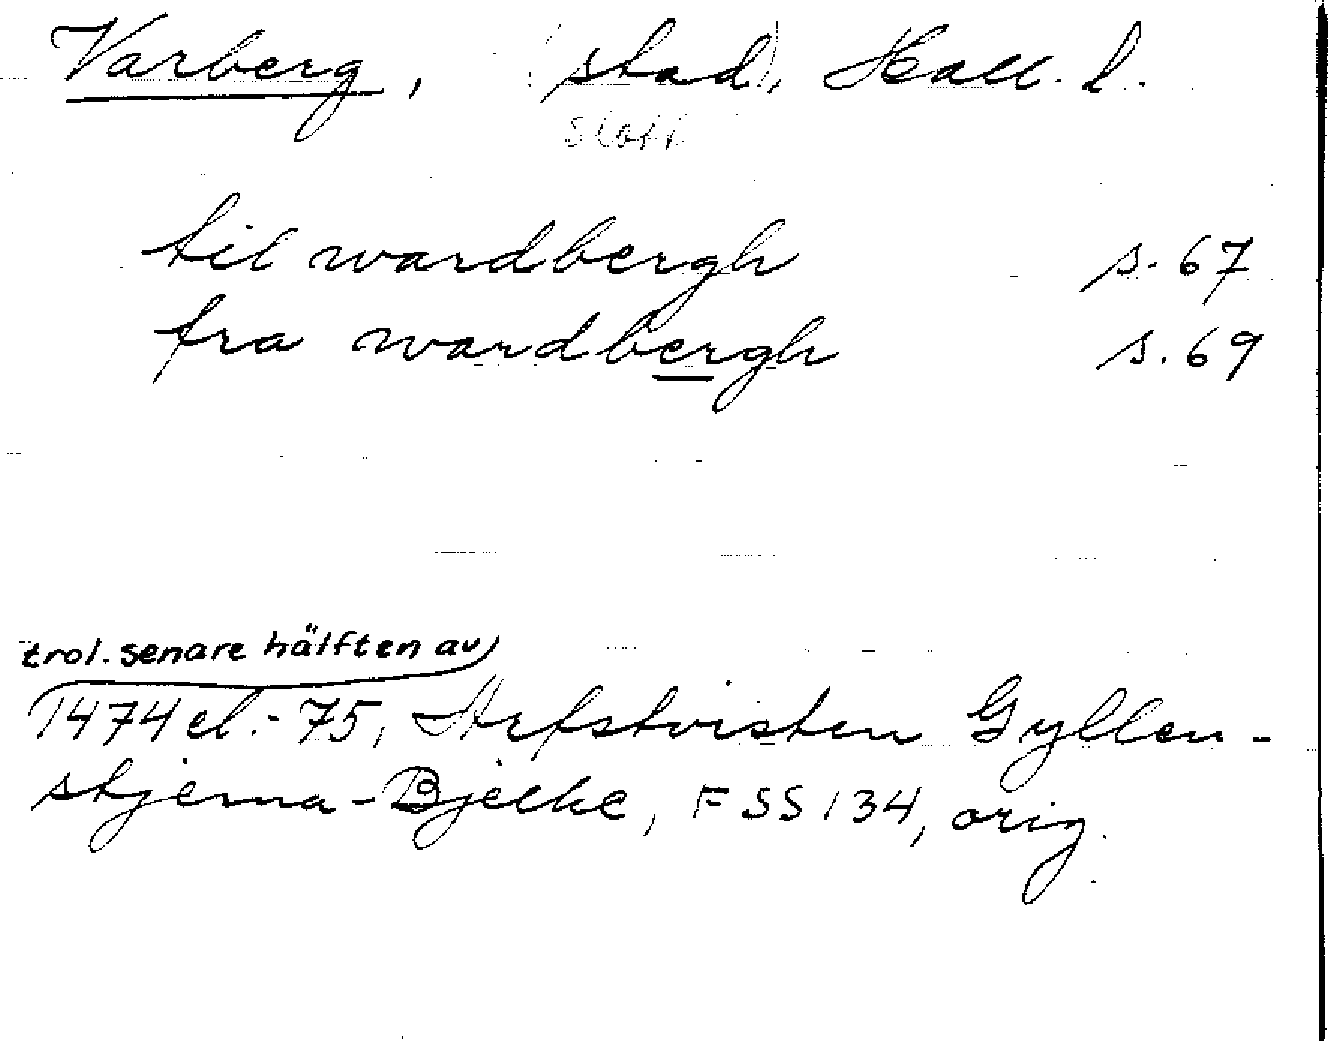 Varberg, (stad), Hall. l.
slott
til wardbergh s. 67
fra wardbergh s. 69
trol. senare hälften av
1474 el.-75, Arfstvisten Gyllen-
stjerna-Bjelke, FSS 134, orig.